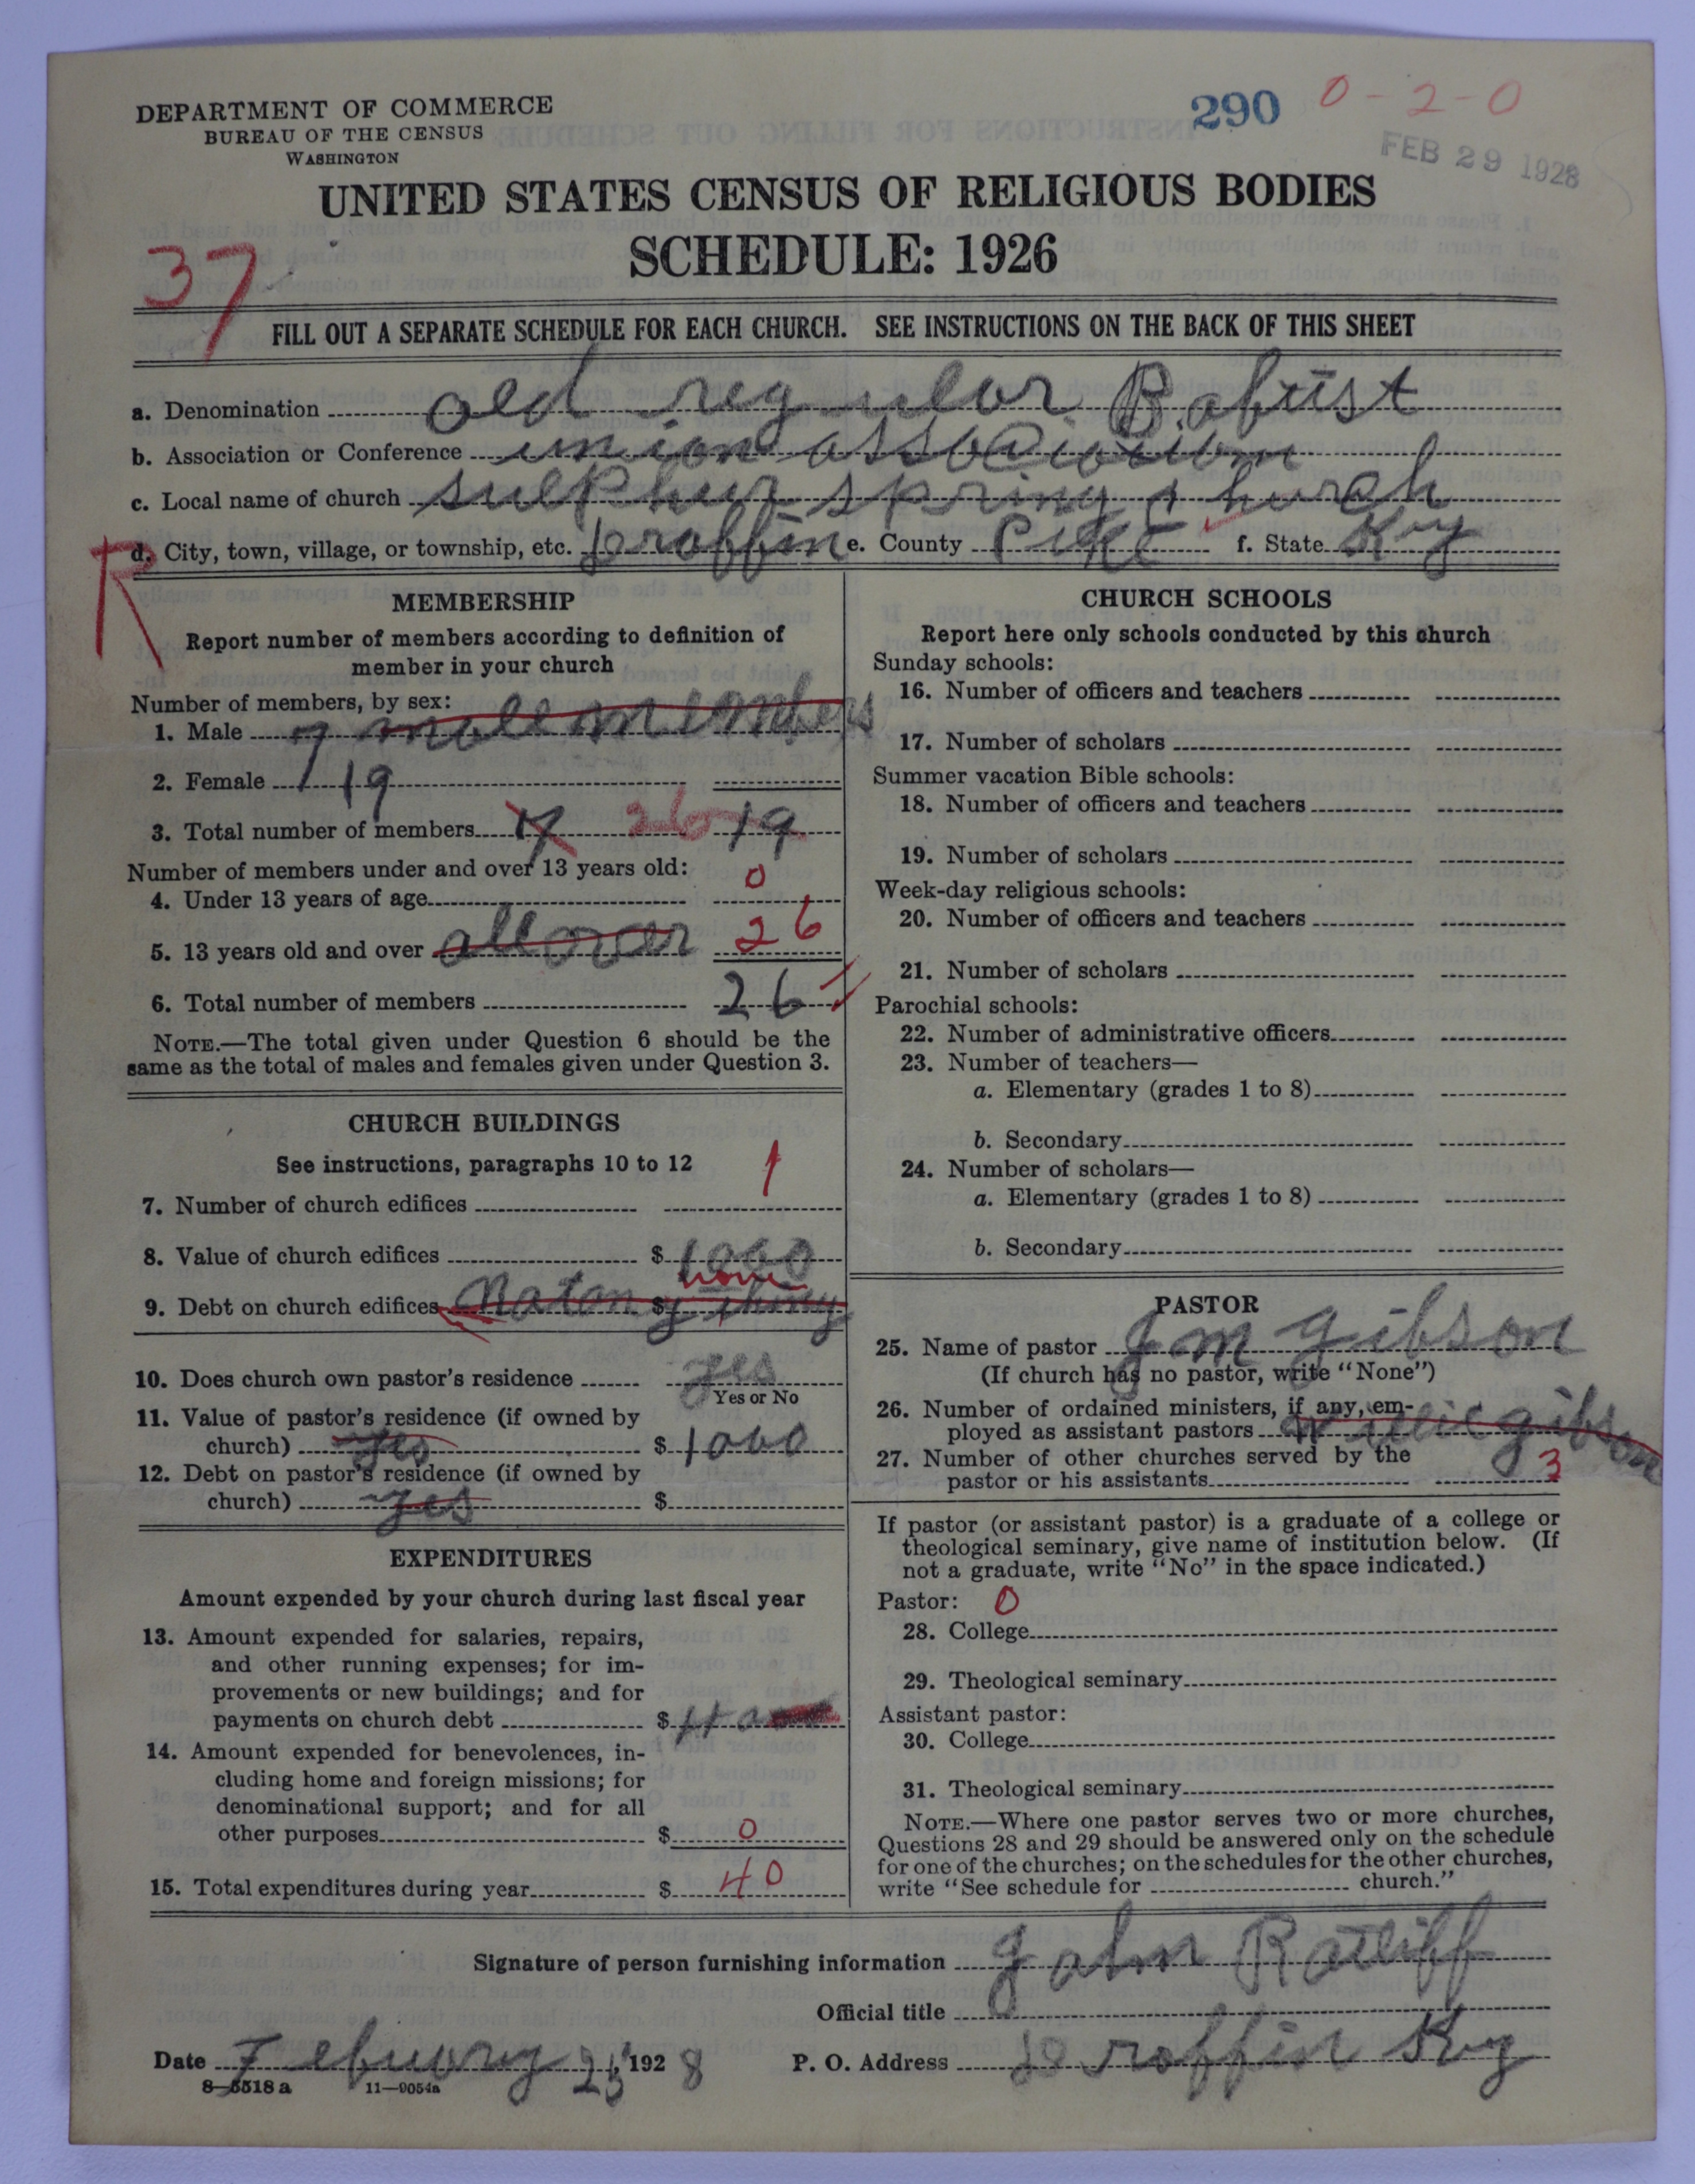 290 0-2-0
DEPARTMENT OF COMMERCE
BUREAU OF THE CENSUS
WASHINGTON
FEB 29 1928
UNITED STATES CENSUS OF RELIGIOUS BODIES
SCHEDULE: 1926
37
FILL OUT A SEPARATE SCHEDULE FOR EACH CHURCH. SEE INSTRUCTIONS ON THE BACK OF THIS SHEET
a. Denomination old regular Baptist
b. Association or Conference union association
c. Local name of church sulphur spring church
R
d. City, town, village, or township, etc. Draffin e. County Pike f. State Ky
MEMBERSHIP
Report number of members according to definition of
member in your church
Number of members, by sex:
1. Male 7 male members
2. Female 19
3. Total number of members 26 19
Number of members under and over 13 years old:
4. Under 13 years of age 0
5. 13 years old and over all over 26
6. Total number of members 26
NOTE.—The total given under Question 6 should be the
same as the total of males and females given under Question 3.
CHURCH BUILDINGS
See instructions, paragraphs 10 to 12
7. Number of church edifices 1
8. Value of church edifices $ 1000
none
9. Debt on church edifices Not any $ thing
10. Does church own pastor's residence yes
Yes or No
11. Value of pastor's residence (if owned by
church) yes $ 1000
12. Debt on pastor's residence (if owned by
church) yes $
EXPENDITURES
Amount expended by your church during last fiscal year
13. Amount expended for salaries, repairs,
and other running expenses; for im-
provements or new buildings; and for
payments on church debt $ 40
14. Amount expended for benevolences, in-
cluding home and foreign missions; for
denominational support; and for all
other purposes $ 0
15. Total expenditures during year $ 40
CHURCH SCHOOLS
Report here only schools conducted by this church
Sunday schools:
16. Number of officers and teachers
17. Number of scholars
Summer vacation Bible schools:
18. Number of officers and teachers
19. Number of scholars
Week-day religious schools:
20. Number of officers and teachers
21. Number of scholars
Parochial schools:
22. Number of administrative officers
23. Number of teachers—
a. Elementary (grades 1 to 8)
b. Secondary
24. Number of scholars—
a. Elementary (grades 1 to 8)
b. Secondary
PASTOR
25. Name of pastor J M gibson
(If church has no pastor, write "None")
26. Number of ordained ministers, if any, em-
ployed as assistant pastors gibson
27. Number of other churches served by the
pastor or his assistants 3
If pastor (or assistant pastor) is a graduate of a college or
theological seminary, give name of institution below. (If
not a graduate, write "No" in the space indicated.)
Pastor: 0
28. College
29. Theological seminary
Assistant pastor:
30. College
31. Theological seminary
NOTE.—Where one pastor serves two or more churches,
Questions 28 and 29 should be answered only on the schedule
for one of the churches; on the schedules for the other churches,
write "See schedule for church."
Signature of person furnishing information John Ratliff
Official title
Date Febuary 25 1928 P. O. Address Draffin Ky
8-5518 a 11-9054a